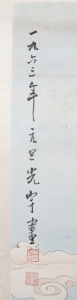 一九六三年元旦光宇画